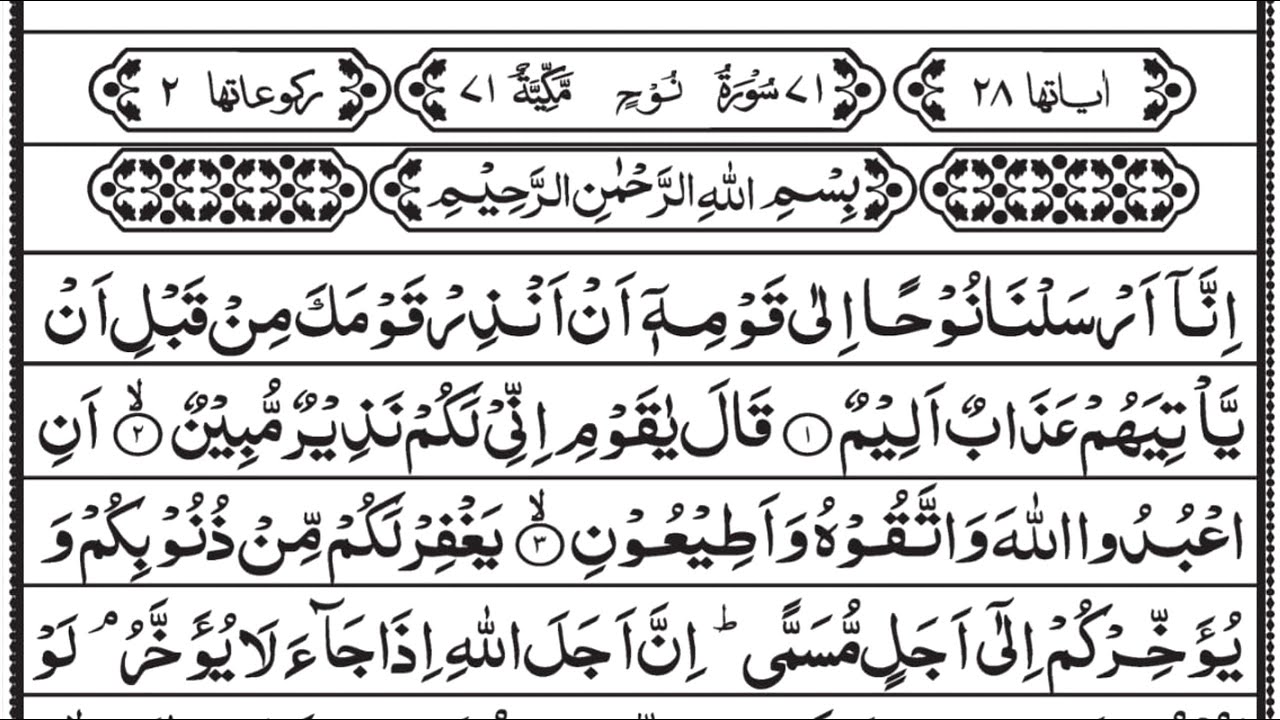 اٰیاتها ۲۸ ۷۱ سُوْرَةُ نُوْحٍ مَّكِّيَّةٌ ۷۱ رکوعاتها ۲
بِسْمِ اللّٰهِ الرَّحْمٰنِ الرَّحِيْمِ
اِنَّاۤ اَرْسَلْنَا نُوْحًا اِلٰى قَوْمِهٖۤ اَنْ اَنْذِرْ قَوْمَكَ مِنْ قَبْلِ اَنْ
يَّاْتِيَهُمْ عَذَابٌ اَلِيْمٌ ۱ قَالَ يٰقَوْمِ اِنِّيْ لَكُمْ نَذِيْرٌ مُّبِيْنٌ ۙ ۲ اَنِ
اعْبُدُوا اللّٰهَ وَاتَّقُوْهُ وَاَطِيْعُوْنِ ۙ ۳ يَغْفِرْ لَكُمْ مِّنْ ذُنُوْبِكُمْ وَ
يُؤَخِّرْكُمْ اِلٰۤى اَجَلٍ مُّسَمًّى ؕ اِنَّ اَجَلَ اللّٰهِ اِذَا جَآءَ لَا يُؤَخَّرُ ۘ لَوْ